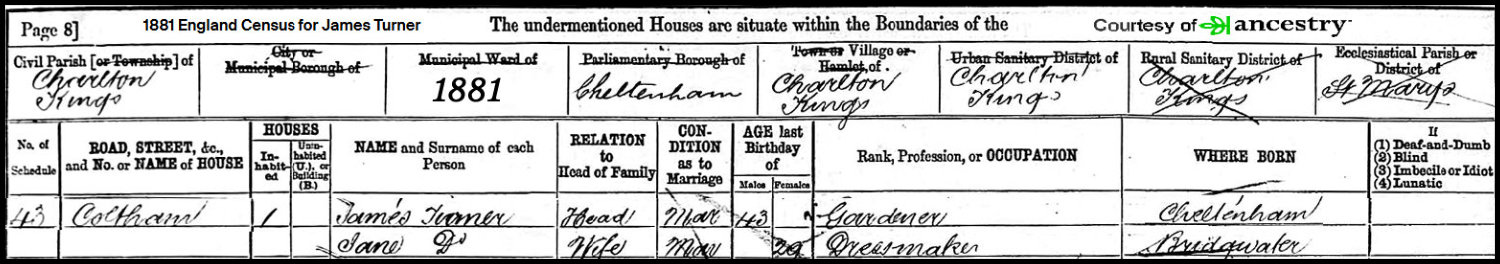 Page 8] 1881 England Census for James Turner The undermentioned Houses are situate within the Boundaries of the Courtesy of ancestry
Civil Parish [or Township] of
Charlton
Kings
City or
Municipal Borough of
Municipal Ward of
1881
Parliamentary Borough of
Cheltenham
Town or Village or
Hamlet, of
Charlton
Kings
Urban Sanitary District of
Charlton
Kings
Rural Sanitary District of
Charlton
Kings
Ecclesiastical Parish or
District of
St Marys
No. of
Schedule
ROAD, STREET, &c.,
and No. or NAME of HOUSE
HOUSES
In-
habit-
ed
Unin-
habited
(U.), or
Building
(B.)
NAME and Surname of each
Person
RELATION
to
Head of Family
CON-
DITION
as to
Marriage
AGE last
Birthday
of
Males Females
Rank, Profession, or OCCUPATION
WHERE BORN
If
(1) Deaf-and-Dumb
(2) Blind
(3) Imbecile or Idiot
(4) Lunatic
43 Coltham 1 James Turner Head Mar 43 Gardener Cheltenham
Jane Do Wife Mar 29 Dressmaker Bridgwater